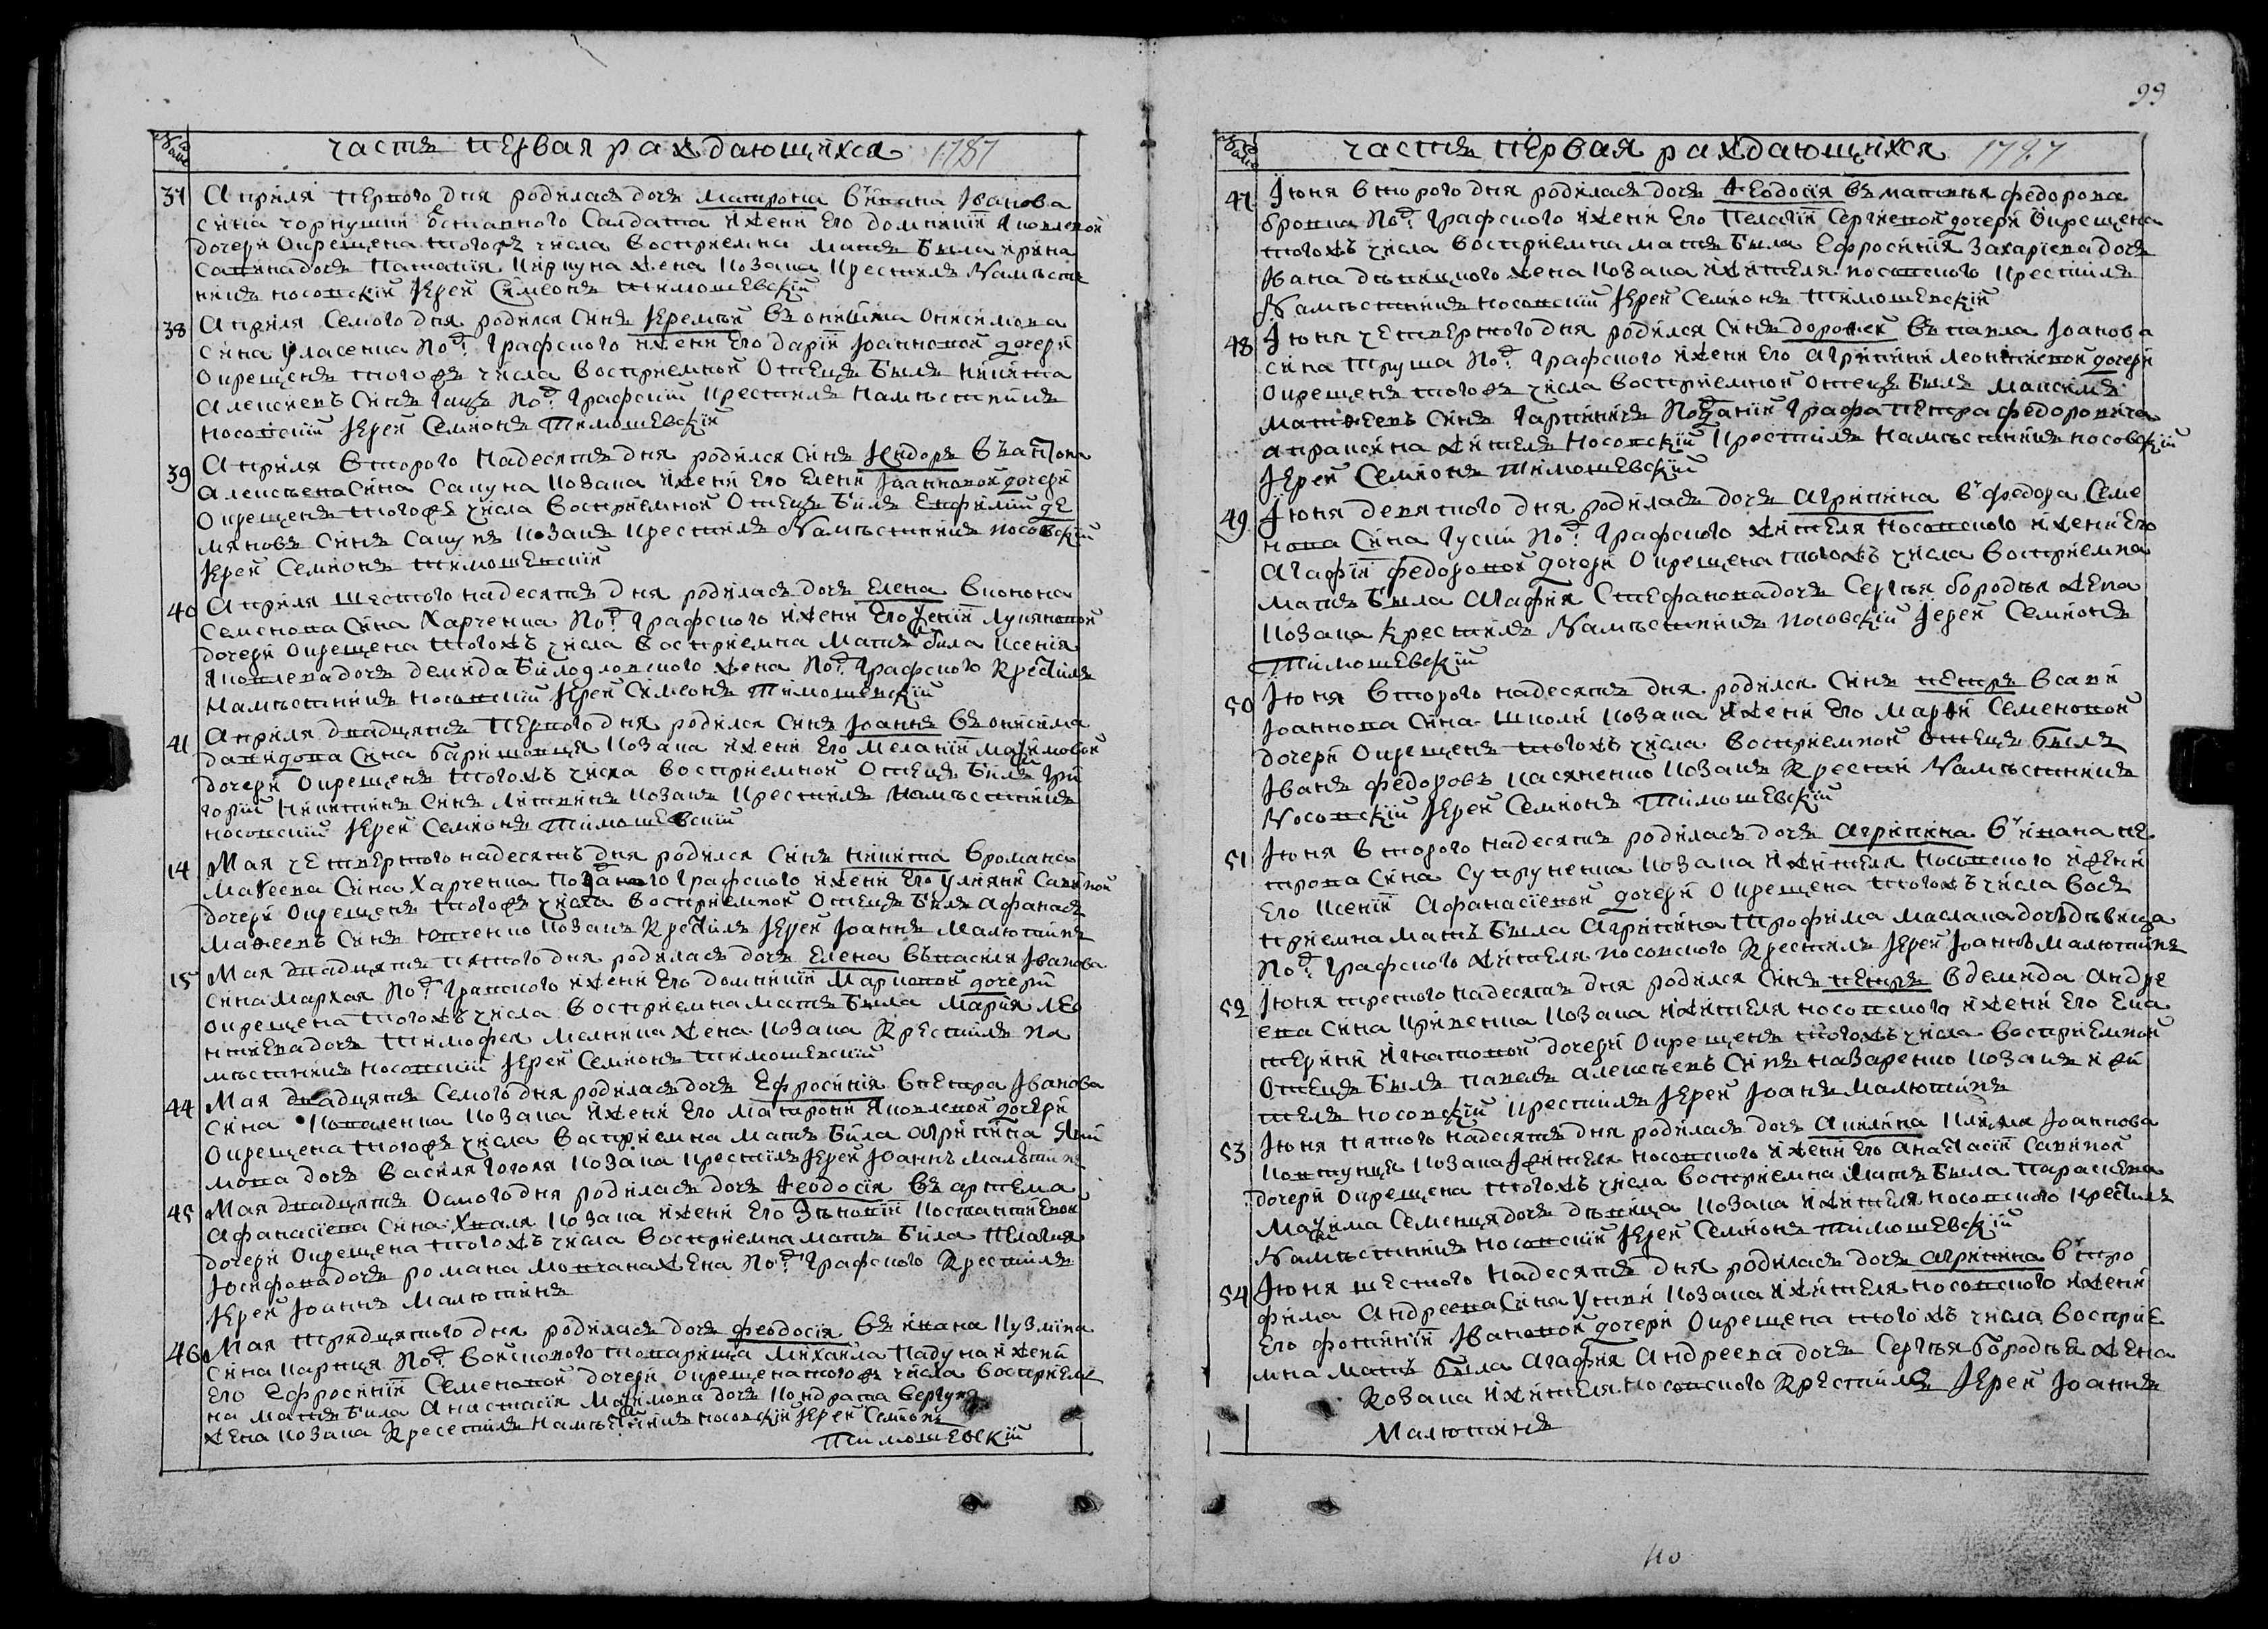 часть первая раждающихся 1787
37 Априля первого дня родилась дочь Матрона в ивана Іванова
сина чорнушки ōставного Салдата и жени его домникіи Яковлевой
дочери Окрещена того жъ числа восприемна мать Била ирина
Савина дочь жена козака Крестилъ Намѣст
никъ носовскій Іерей Симеонъ Тимошевскій
38 Априля Семого дня родился Синъ Іеремѣй въ онисима Онисимова
сина Уласенка под: Графского и жени его Даріи Іоанновой дочери
Окрещенъ того жъ числа восприемной Отецъ Билъ Никита
Алексѣевъ Синъ Гацъ под: Графскій Крестилъ Намѣстникъ
носовскій Іерей Семионъ Тимошевскій
39 Априля второго надесять дня родился Синъ Ісидоръ въ антона
Алексѣева Сина Сапуна козака и жени его Елени Іоанновой дочери
Окрещенъ того жъ числа восприемной Отецъ Билъ Евфимій де
мяновъ Синъ Сапунъ козакъ Крестилъ Намѣстникъ носовскій
Іерей Семионъ Тимошевскій
40 Априля шестого надесять дня родилась дочь Елена в конона
Семенова Сина Харченка под: Графского и жени его Ѯеніи Лукяновой
дочери Окрещена того жъ числа восприемна Мать била Ксенія
Яковлева дочь демида Билодловского жена под: Графского Крестилъ
Намѣстникъ носовскій Іерей Симеонъ Тимошевскій
41 Априля двадцять первого дня родился Синъ Іоаннъ въ онисима
давидова Сина баришовця козака и жени его Меланіи Маѯимовой
дочери Окрещенъ того жъ числа восприемной Отецъ Билъ Гри
горій Никитинъ Синъ Литвинъ козакъ Крестилъ Намѣстникъ
носовскій Іерей Семионъ Тимошевскій
14 Мая четвертого надесять дня родился Синъ Никита в романа
Маѳеева Сина Харченка поданого Графского и жени его Уляни Савиной
дочери Окрещенъ того жъ числа восприемной Отецъ Билъ Афанасъ
Маѳеевъ Синъ Ювченко козакъ Крестилъ Іерей Іоаннъ Малютинъ
15 Мая двадцять пятого дня родилась дочь Елена въ василя Іванова
сина Мархая под: Графского и жени его домникіи Марковой дочери
окрещена того жъ числа восприемна мать Била Мария Лео
нтиева дочь Тимофея Мелника жена козака Крестилъ На
мѣстникъ носовскій Іерей Семионъ Тимошевскій
44 Мая двадцять Семого дня родилась дочь Ефросинія в петра Іванова
Сина Коваленка козака и жени его Матрони Яковлевой дочери
Окрещена того жъ числа восприемна мать Била агрипина Яки
мова дочь василя Гоголя козака крестилъ Іерей Іоаннъ Малютинъ
45 Мая двадцять Осмого дня родилась дочь Ѳеодосія въ артема
Афанасіева Сина Хваля козака и жени его Зѣновіи Костантиевой
дочери Окрещена того жъ числа восприемна мать Била Пелагия
Іосифова дочь романа Мовчана жена под: Графского Крестилъ
Іерей Іоаннъ Малютинъ
46 Мая тридцятого дня родилась дочь феодосія въ ивана Кузмина
Сина карпця под: войскового товариша Михаила Падуна и жени
его Ефросиніи Семеновой дочери окрещена того жъ числа восприем
на мать Била Анастасія Маѯимова дочь Кондрата вергуна
жена козака Крестилъ Намѣстникъ носовскій Іерей Семионъ
Тимошевскій
99
часть первая раждающихся 1787
47 Іюня второго дня родилась дочь Ѳеодосія въ матвѣя федорова
бровка под: Графского и жени его Пелагіи Сергиевой дочери Окрещена
того жъ числа восприемна мать Била Ефросинія Захариева дочь
Івана жена козака и жителя носовского Крестилъ
Намѣстникъ носовскій Іерей Семионъ Тимошевскій
48 Іюня четвертого дня родился Синъ дорофей въ павла Іоанова
сина Труша под: Графского и жени его Агрипини Леонтиевой дочери
Окрещенъ того жъ числа восприемной отецъ Билъ Максимъ
Матѳеевъ Синъ Гаркинъ поданій Графа Петра федоровича
апраксина житель носовскій Крестилъ Намѣстникъ носовскій
Іерей Семионъ Тимошевскій
49 Іюня девятого дня родилась дочь Агрипина в федора Семе
нова Сина Гуский под: Графского жителя носовского и жени его
Агафіи федоровой дочери Окрещена того жъ числа восприемна
мать Била Агафия Стефанова дочь Сергѣя бородѣя жена
козака Крестилъ Намѣстникъ носовскій Іерей Семионъ
Тимошевскій
50 Іюня второго надесять дня родился Синъ петръ в сави
Іоаннова Сина школи козака и жени его Марѳи Семеновой
дочери Окрещенъ того жъ числа восприемной отецъ Билъ
Іванъ федоровъ касяненко козакъ Крести Намѣстникъ
Носовскій Іерей Семионъ Тимошевскій
51 Іюня второго надесять родилась дочь агрипина в ивана пе
трова Сина Супруненка козака и жителя носовского и жени
его Ксеніи Афанасіевой дочери Окрещена того жъ числа вось
приемна мать Била Агрипина Трофима маслака дочь дѣвица
под: Графского жителя носовского Крестилъ Іерей Іоаннъ Малютинъ
52 Іюня третого надесять дня родился Синъ петръ в демида Андре
ева Сина Кривенка козака и жителя носовского и жени его Ека
терини Игнатовой дочери Окрещенъ того жъ числа восприемной
Отецъ Билъ павелъ алексѣевъ Синъ назаренко козакъ и жи
тель носовскій крестилъ Іерей Іоанъ Малютинъ
53 Іюня пятого надесять дня родилась дочь Акилина Клима Іоаннова
Ковтунця козака жителя носовского и жени его анастасіи Савиной
дочери Окрещена того жъ числа восприемна Мать Била Параскева
Маѯима Семенця дочь дѣвица козака и жителя носовского Крестилъ
Намѣстникъ носовскій Іерей Семионъ Тимошевскій
54 Іюня шестого надесять дня родилась дочь агрипина в тро
фима Андреева Сина Утви козака и жителя носовского и жени
его фотиніи Івановой дочери Окрещена того жъ числа восприе
мна мать била Агафия Андреева дочь Сергѣя бородѣя жена
Козака и жителя носовского Крестилъ Іерей Іоаннъ
Малютинъ